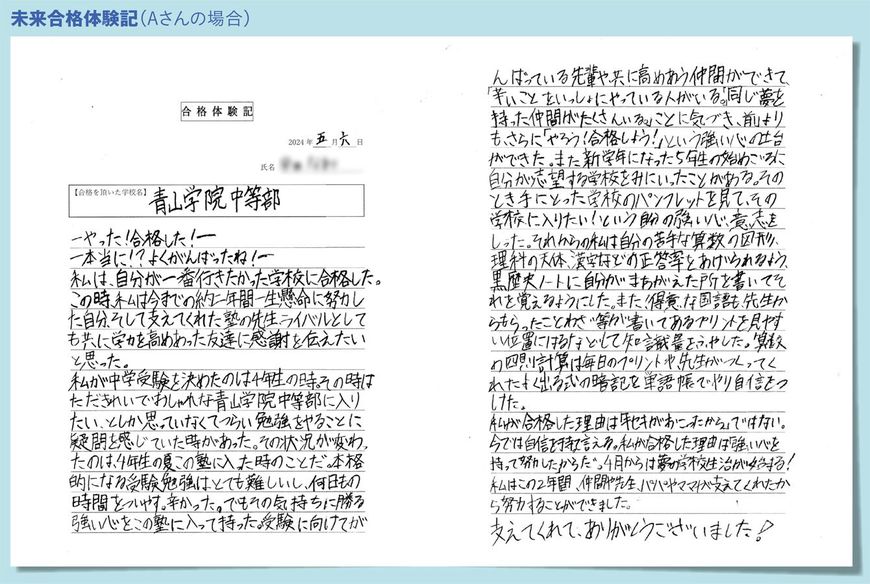 未来合格体験記(Aさんの場合)
合格体験記
2024年 五月 六日
氏名
【合格を頂いた学校名】
青山学院中等部
ーやった!合格した!ー
ー本当に!?よくがんばったね!ー
私は、自分が一番行きたかった学校に合格した。
この時、私は今までの約二年間一生懸命に努力し
た自分、そして支えてくれた塾の先生、ライバルとして
も共に学力を高めあった友達に感謝を伝えたい
と思った。
私が中学受験を決めたのは4年生の時。その時は
ただきれいでおしゃれな青山学院中等部に入り
たい、としか思っていなくてつらい勉強をやることに
疑問を感じていた時があった。その状況が変わっ
たのは、4年生の夏この塾に入った時のことだ。本格
的になる受験勉強はとても難しいし、何日もの
時間をついやす。辛かった。でもその気持ちに勝る
強い心をこの塾に入って持った。受験に向けてが
んばっている先輩や共に高めあう仲間ができて、
「辛いことをいっしょにやっている人がいる。」「同じ夢を
持った仲間がたくさんいる。」ことに気づき、前より
も、さらに「やろう!合格しよう!」という強い心の土台
ができた。また新学年になった5年生の始めごろに
自分が志望する学校をみにいったことがある。その
とき手にとった学校のパンフレットを見て、その
学校に入りたい!という自分の強い心、意志を
しった。それからの私は自分の苦手な算数の図形、
理科の天体、法則などの正答率をあげられるよう、
黒歴史ノートに自分がまちがえた所を書いてそ
れを覚えるようにした。また、得意な国語も先生か
らもらったことわざ等が書いてあるプリントを見やす
い位置にはるなどして知識量をふやした。算数
の四則計算は毎日のプリントや先生がつくってく
れたよく出る式の暗記を単語帳でやり自信をつ
けた。
私が合格した理由は「キセキがおこったから」ではない。
今では自信を持て言える。私が合格した理由は「強い心を
持って努力したから」だ。4月からは夢の学校生活が始まる!
私はこの2年間、仲間や先生、パパやママが支えてくれたか
ら努力することができました。
支えてくれて、ありがとうございました!